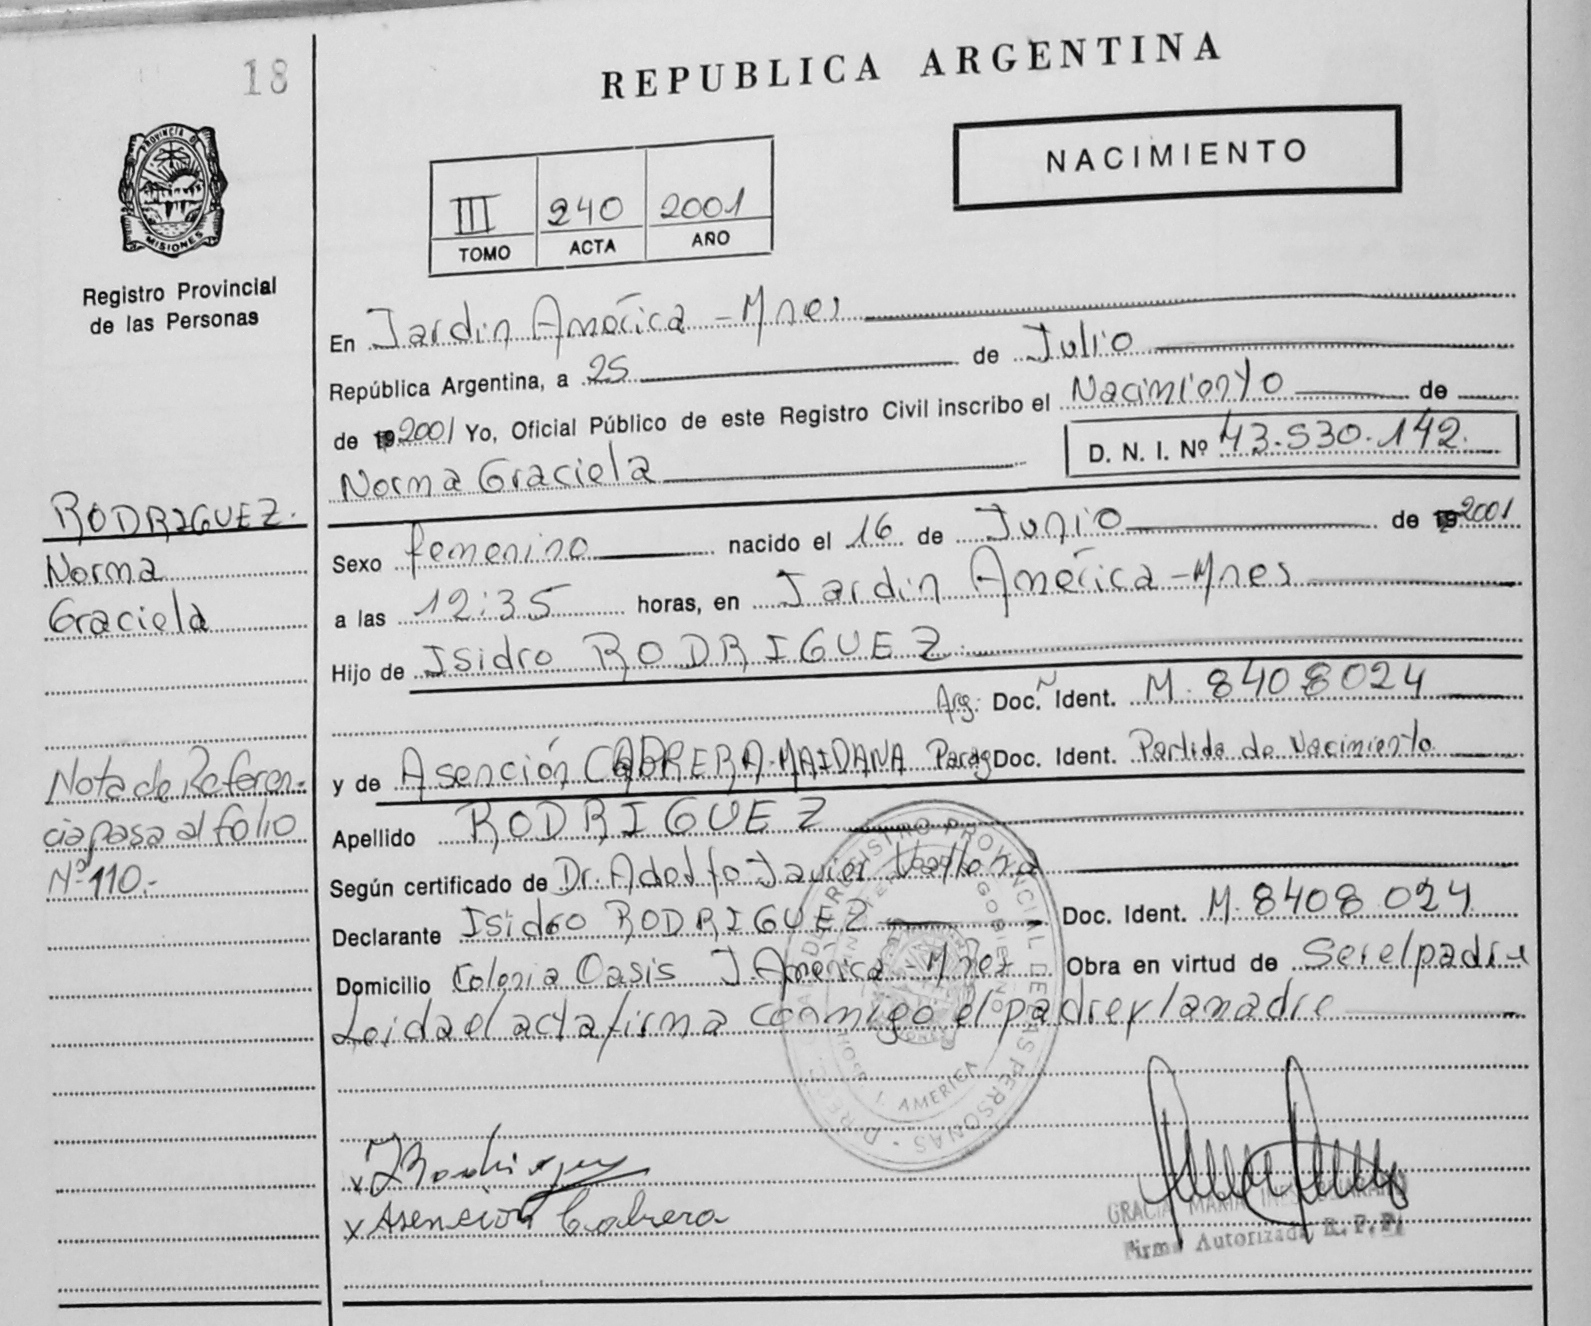 18
REPUBLICA ARGENTINA
PROVINCIA D
MISIONES
Registro Provincial
de las Personas
NACIMIENTO
III 240 2001
TOMO ACTA AÑO
En Jardin América - Mnes
República Argentina, a 25 de Julio
de 19 2001 Yo, Oficial Público de este Registro Civil inscribo el Nacimiento de
D. N. I. Nº 43.530.142.
Norma Graciela
RODRIGUEZ.
Norma
Graciela
Sexo femenino nacido el 16 de Junio de 19 2001
a las 12:35 horas, en Jardin América - Mnes
Hijo de Isidro RODRIGUEZ.
Arg. Doc. Ident. M. 8408024
y de Asención CABRERA-MAIDANA Parag Doc. Ident. Partida de Nacimiento
Nota de Referen-
cia pasa al folio
Nº 110.-
Apellido RODRIGUEZ
Según certificado de Dr. Adolfo Javier
Declarante Isidro RODRIGUEZ Doc. Ident. M. 8408.024
Domicilio Colonia Oasis J. América - Mnes Obra en virtud de Ser el padre
Leida el acta firma conmigo el padre y la madre
REGISTRO PROVINCIAL DE LAS PERSONAS
GOBIERNO
J. AMERICA
x Asención Cabrera
Firma Autorizada R. P. P.